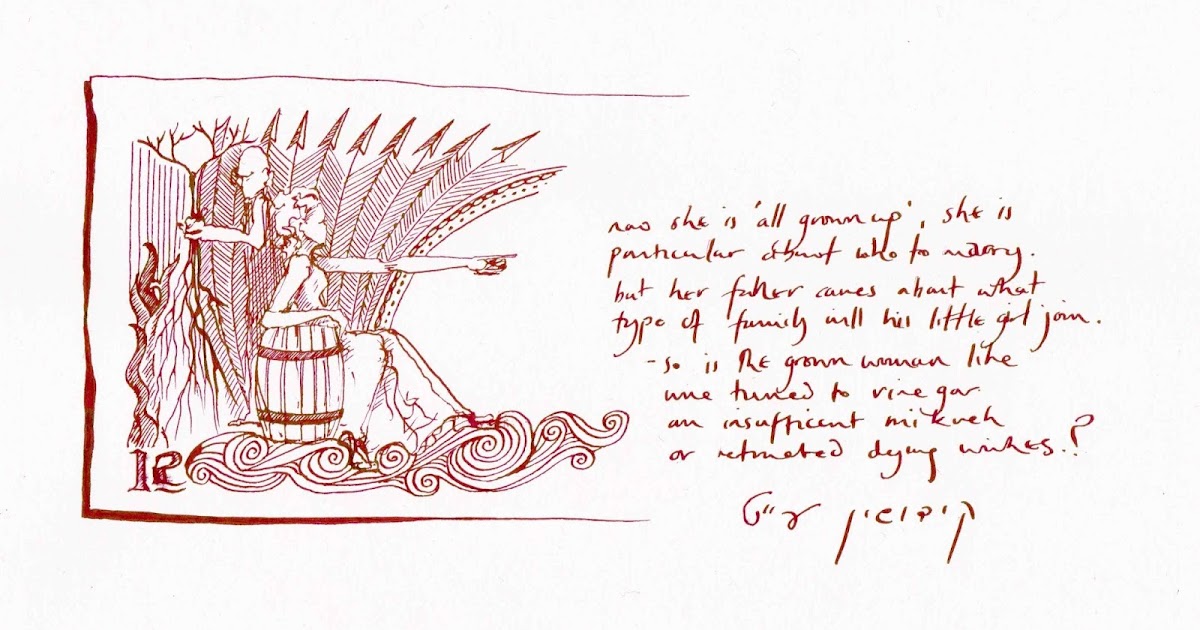 now she is 'all grown up', she is
particular about who to marry.
but her father cares about what
type of family will his little girl join.
- so is the grown woman like
wine turned to vinegar
an insufficent mikveh
or retracted dying wishes.?
קידושין ע״ט